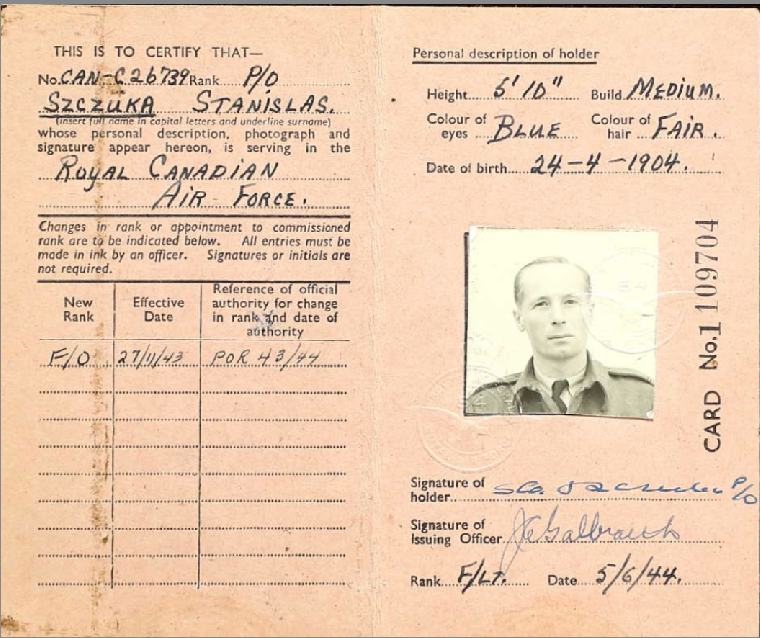 THIS IS TO CERTIFY THAT—
No. CAN-C26739 Rank P/O
SZCZUKA STANISLAS.
(insert full name in capital letters and underline surname)
whose personal description, photograph and
signature appear hereon, is serving in the
ROYAL CANADIAN
AIR FORCE.
Changes in rank or appointment to commissioned
rank are to be indicated below. All entries must be
made in ink by an officer. Signatures or initials are
not required.
New Rank
Effective Date
Reference of official authority for change in rank and date of authority
F/O 27/11/43 POR 43/44
Personal description of holder
Height 5' 10" Build MEDIUM.
Colour of eyes BLUE Colour of hair FAIR.
Date of birth 24-4-1904.
CARD No.1 109704
Signature of holder P/O
Signature of Issuing Officer JCGalbraith
Rank F/LT. Date 5/6/44.